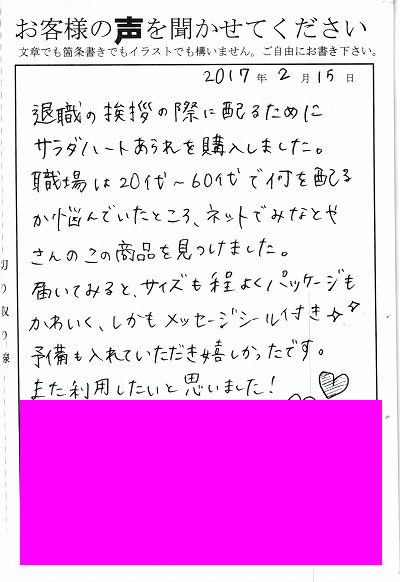 お客様の声を聞かせてください
文章でも箇条書きでもイラストでも構いません。ご自由にお書き下さい。
2017年2月15日
退職の挨拶の際に配るために
サラダハートあられを購入しました。
職場は20代～60代で何を配る
か悩んでいたところ、ネットでみなとや
さんのこの商品を見つけました。
届いてみると、サイズも程よくパッケージも
かわいく、しかもメッセージシール付き
予備も入れていただき嬉しかったです。
また利用したいと思いました!
切り取り線